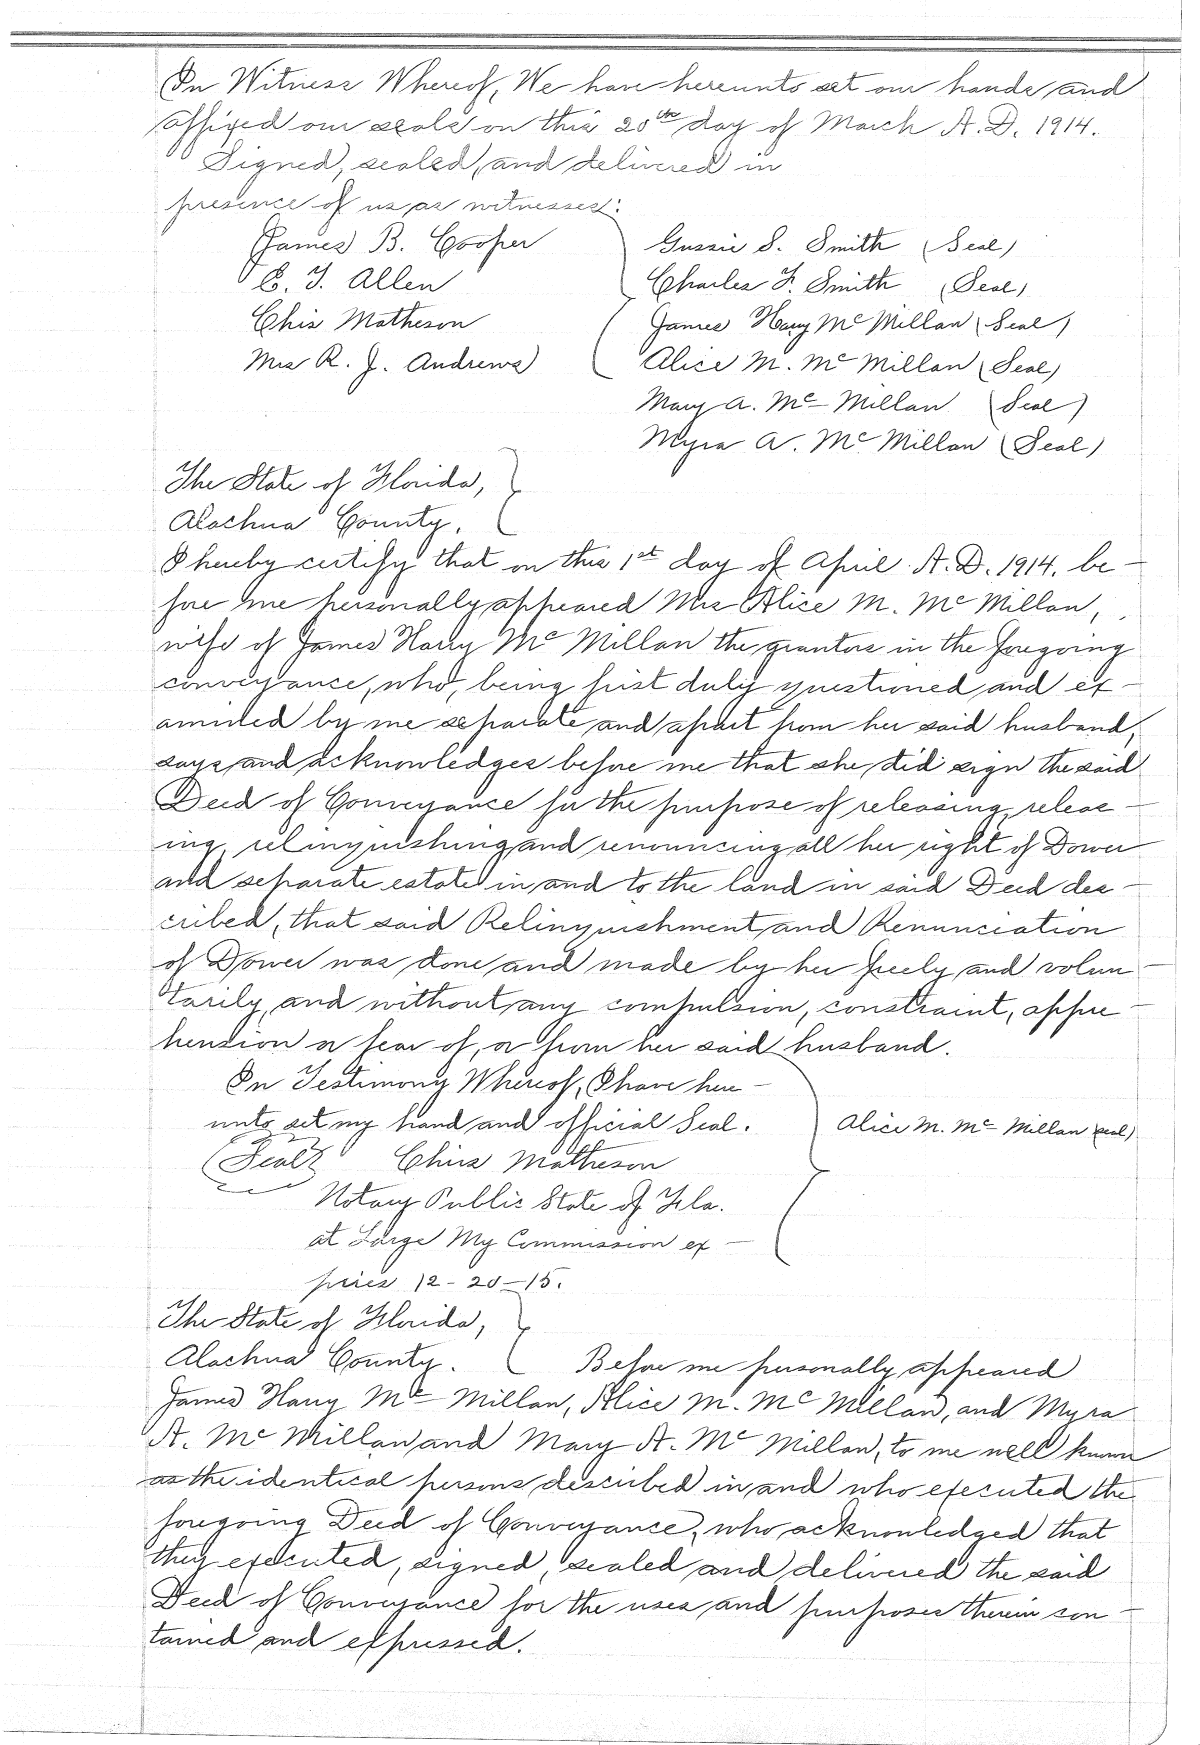 In Witness Whereof, We have hereunto set our hands and
affixed our seals on this 20th day of March A. D. 1914.
Signed, sealed, and delivered in
presence of us as witnesses:
James B. Cooper Gussie S. Smith (Seal)
C. T. Allen Charles F. Smith (Seal)
Chis Matheson James Harry Mc Millan (Seal)
Mrs R. J. Andrews Alice M. Mc Millan (Seal)
Mary A. Mc Millan (Seal)
Myra A. Mc Millan (Seal)
The State of Florida,
Alachua County.
I hereby certify that on this 1st day of April A. D. 1914, be-
fore me personally appeared Mrs Alice M. Mc Millan,
wife of James Harry Mc Millan the grantors in the foregoing
conveyance, who, being first duly questioned and ex-
amined by me separate and apart from her said husband,
says and acknowledges before me that she did sign the said
Deed of Conveyance for the purpose of releasing, releas-
ing, relinquishing and renouncing all her right of Dower
and separate estate in and to the land in said Deed des-
cribed, that said Relinquishment and Renunciation
of Dower was done and made by her freely and volun-
tarily, and without any compulsion, constraint, appre-
hension or fear of, or from her said husband.
In Testimony Whereof, I have here-
unto set my hand and official Seal. Alice M. Mc Millan (seal)
(Seal) Chris Matheson
Notary Public State of Fla.
at Large My Commission ex-
pires 12-20-15.
The State of Florida,
Alachua County. Before me personally appeared
James Harry Mc Millan, Alice M. Mc Millan, and Myra
A. Mc Millan and Mary A. Mc Millan, to me well known
as the identical persons described in and who executed the
foregoing Deed of Conveyance, who acknowledged that
they executed, signed, sealed and delivered the said
Deed of Conveyance for the uses and purposes therein con-
tained and expressed.